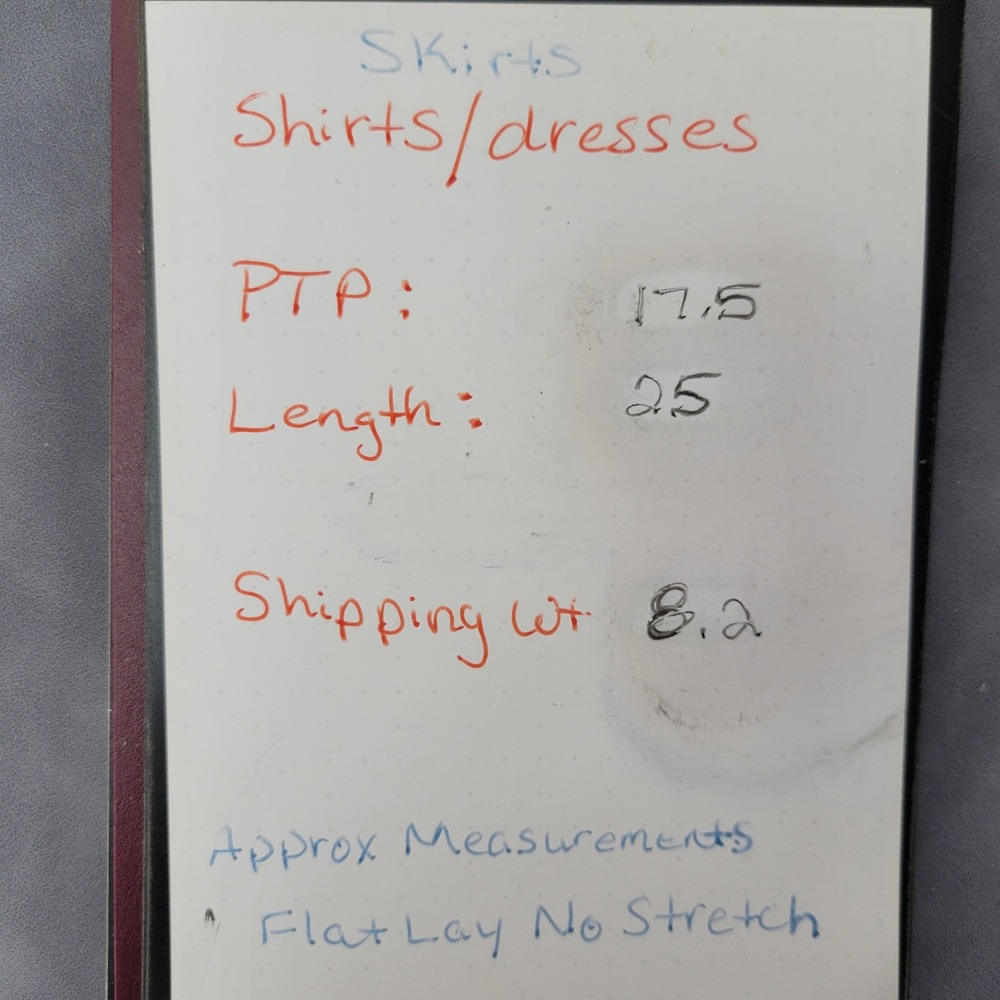 Skirts
Shirts/dresses
PTP: 17.5
Length: 25
Shipping Wt. 8.2
Approx Measurements
Flat Lay No Stretch